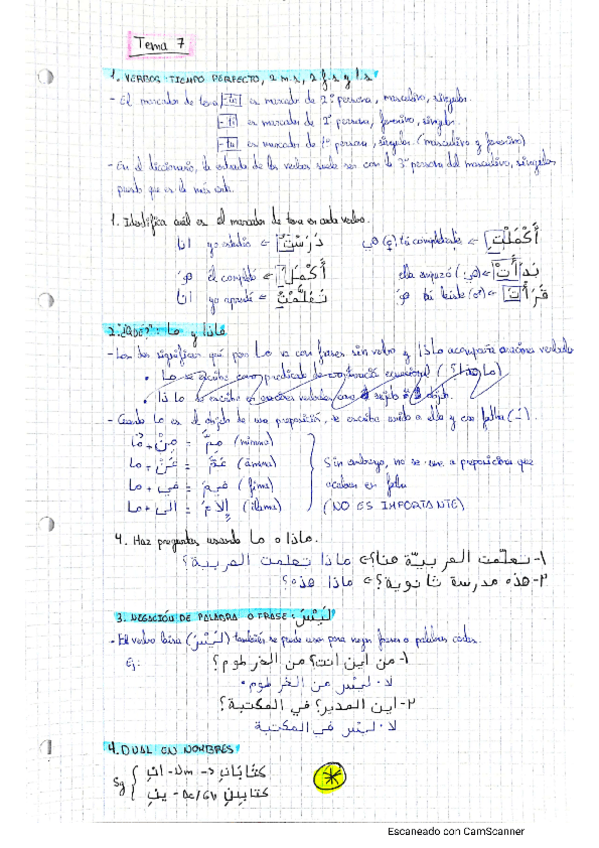 Tema 7
1. VERBOS TIEMPO PERFECTO, 2 m.s, 2 f.s y 1.s
- El marcador de tema -ta es marcador de 2ª persona, masculino, singular.
-ti es marcador de 2ª persona, femenino, singular.
-tu es marcador de 1ª persona, singular. (masculino y femenino)
- En el diccionario, la entrada de los verbos suele ser con la 3ª persona del masculino, singular
puesto que es la más corta.
1. Identifica cuál es el marcador de tema en cada verbo.
انا yo estudio ← دَرَسْتُ
هي (♀) tú completaste ← أَكْمَلْتِ
هو él completó ← أَكْمَلَ
ella empezó (هي) ← بَدَأَتْ
انا yo aprendí ← تَعَلَّمْتُ
هو tú leíste (♂) ← قَرَأْتَ
2. "¿QUÉ?": ما y ماذا
- Los dos significan qué pero ما va con frases sin verbo y ماذا acompaña oraciones verbales
- Cuando ما es el objeto de una preposición, se escribe unido a ella y con fatha (َ-).
ما + مِنْ مِمَّ (mimma)
ما + عَنْ عَمَّ (ámma)
ما + في فيمَ (fima)
ما + إلى إلامَ (ilama)
Sin embargo, no se une a preposiciones que
acaban en fatha
(NO ES IMPORTANTE)
4. Haz preguntas usando ما o ماذا.
١- تعلّمت العربيّة هنا؟ ← ماذا تعلمت العربية؟
٢- هذه مدرسة ثانوية؟ ← ماذا هذه؟
3. NEGACIÓN DE PALABRA O FRASE: لَيْسَ
- El verbo laisa (لَيْسَ) también se puede usar para negar frases o palabras cortas.
Ej:
١- من اين انت؟ من الخرطوم؟
لا. ليس من الخرطوم.
٢- اين المدير؟ في المكتبة؟
لا. ليس في المكتبة
4. DUAL EN NOMBRES
Sg
كتابَانِ ← Nm - انِ
كتابينِ Ac/Gn - ينِ
Escaneado con CamScanner